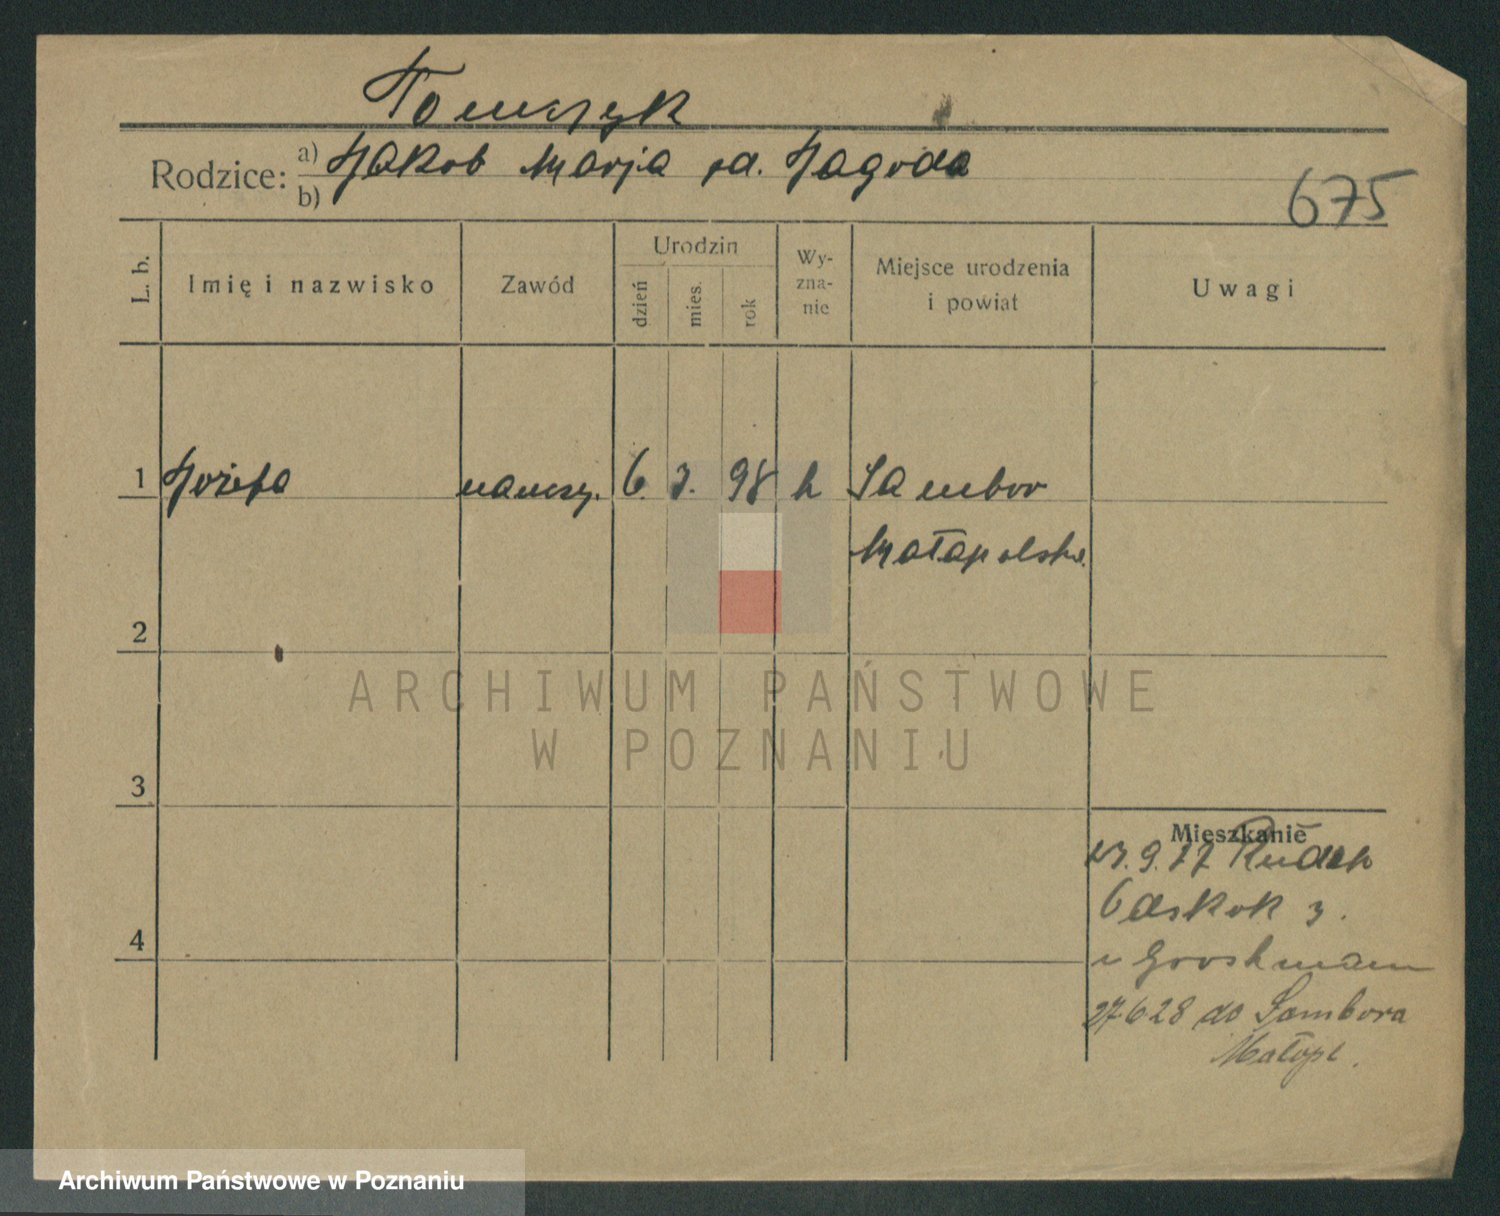 Tomczyk
Rodzice: a) Jakob Marja rd. Jagoda
b)
675
L. b. Imię i nazwisko Zawód Urodzin dzień mies. rok Wy-zna-nie Miejsce urodzenia i powiat Uwagi
1 Józefa naucz. 6. 3. 98 k Sambor
Małopolska
2
ARCHIWUM PAŃSTWOWE
W POZNANIU
3
Mieszkanie
9.27
4
3.
u
27 6 28 do Sambora
Małopl.
Archiwum Państwowe w Poznaniu